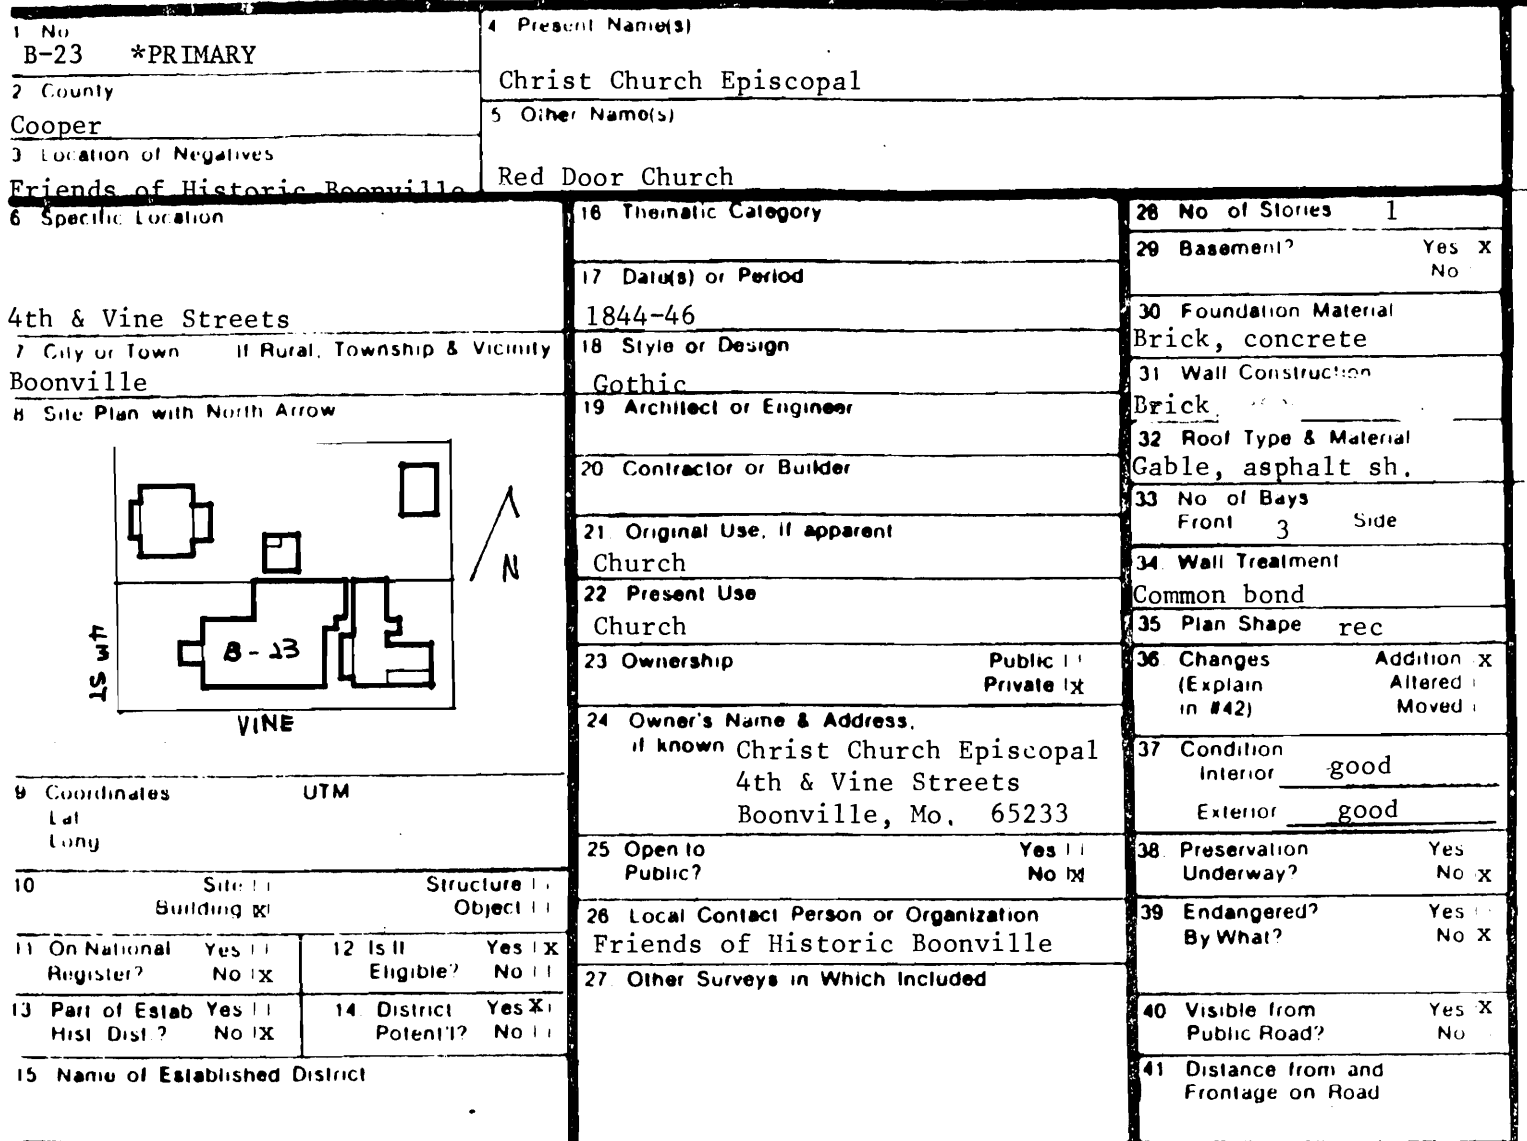 1 No
B-23 *PRIMARY
2 County
Cooper
3 Location of Negatives
Friends of Historic Boonville
4 Present Name(s)
Christ Church Episcopal
5 Other Name(s)
Red Door Church
6 Specific Location
4th & Vine Streets
7 City or Town If Rural, Township & Vicinity
Boonville
8 Site Plan with North Arrow
N
B-23
4TH ST
VINE
9 Coordinates UTM
Lat
Long
10 Site
Structure
Building X
Object
11 On National Register? Yes
No X
12 Is It Eligible? Yes X
No
13 Part of Estab Hist Dist.? Yes
No X
14 District Potent'l? Yes X
No
15 Name of Established District
16 Thematic Category
17 Date(s) or Period
1844-46
18 Style or Design
Gothic
19 Architect or Engineer
20 Contractor or Builder
21 Original Use, if apparent
Church
22 Present Use
Church
23 Ownership Public
Private X
24 Owner's Name & Address,
if known Christ Church Episcopal
4th & Vine Streets
Boonville, Mo. 65233
25 Open to Yes
Public? No X
26 Local Contact Person or Organization
Friends of Historic Boonville
27 Other Surveys in Which Included
28 No of Stories 1
29 Basement? Yes X
No
30 Foundation Material
Brick, concrete
31 Wall Construction
Brick
32 Roof Type & Material
Gable, asphalt sh.
33 No of Bays
Front 3 Side
34 Wall Treatment
Common bond
35 Plan Shape rec
36 Changes Addition X
(Explain Altered
in #42) Moved
37 Condition
Interior good
Exterior good
38 Preservation Yes
Underway? No X
39 Endangered? Yes
By What? No X
40 Visible from Yes X
Public Road? No
41 Distance from and
Frontage on Road